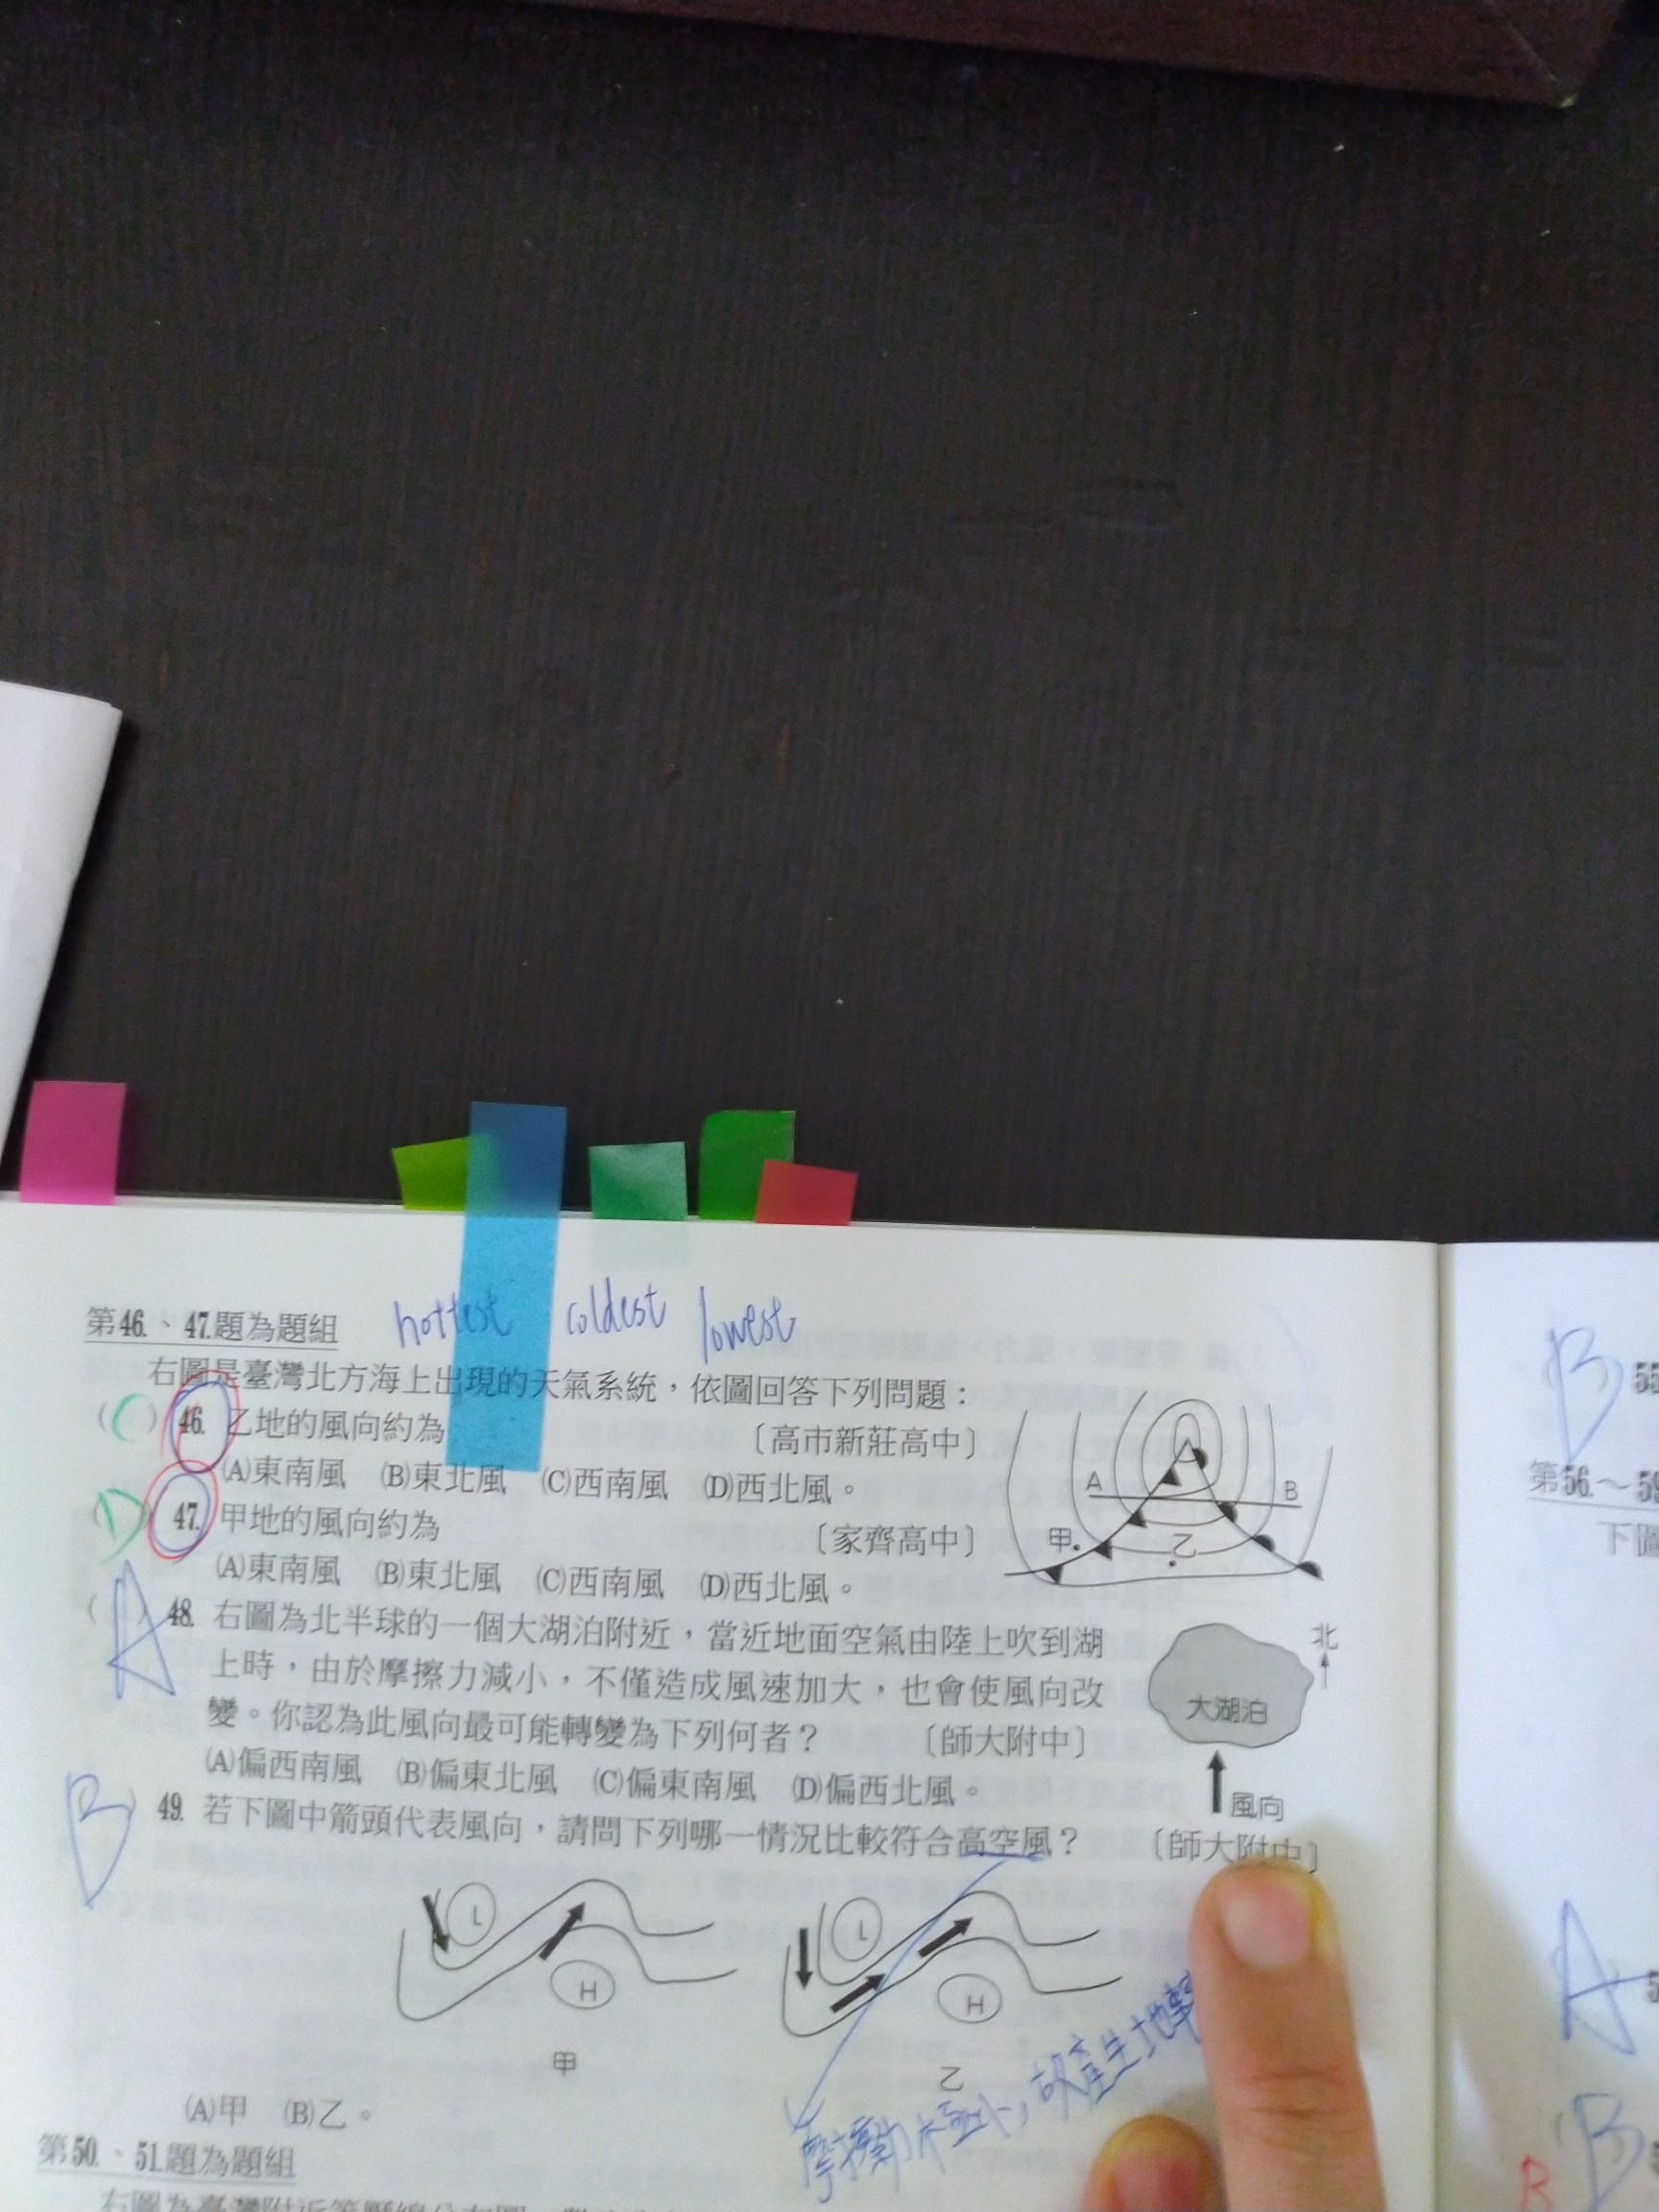 hottest coldest lowest
第46.、47.題為題組
右圖是臺灣北方海上出現的天氣系統，依圖回答下列問題：
(C) 46. 乙地的風向約為 〔高市新莊高中〕
(A)東南風 (B)東北風 (C)西南風 (D)西北風。
(D) 47. 甲地的風向約為 〔家齊高中〕
(A)東南風 (B)東北風 (C)西南風 (D)西北風。
A B
甲 乙
(A) 48. 右圖為北半球的一個大湖泊附近，當近地面空氣由陸上吹到湖
上時，由於摩擦力減小，不僅造成風速加大，也會使風向改
變。你認為此風向最可能轉變為下列何者？ 〔師大附中〕
(A)偏西南風 (B)偏東北風 (C)偏東南風 (D)偏西北風。
北
大湖泊
風向
B 49. 若下圖中箭頭代表風向，請問下列哪一情況比較符合高空風？ 〔師大附中〕
L H
L H
甲 乙
摩擦力極小，故產生地轉
(A)甲 (B)乙。
第50.、51.題為題組
右圖為臺灣附近等壓線分布圖
B 55
第56.～59
下圖
A
B
B